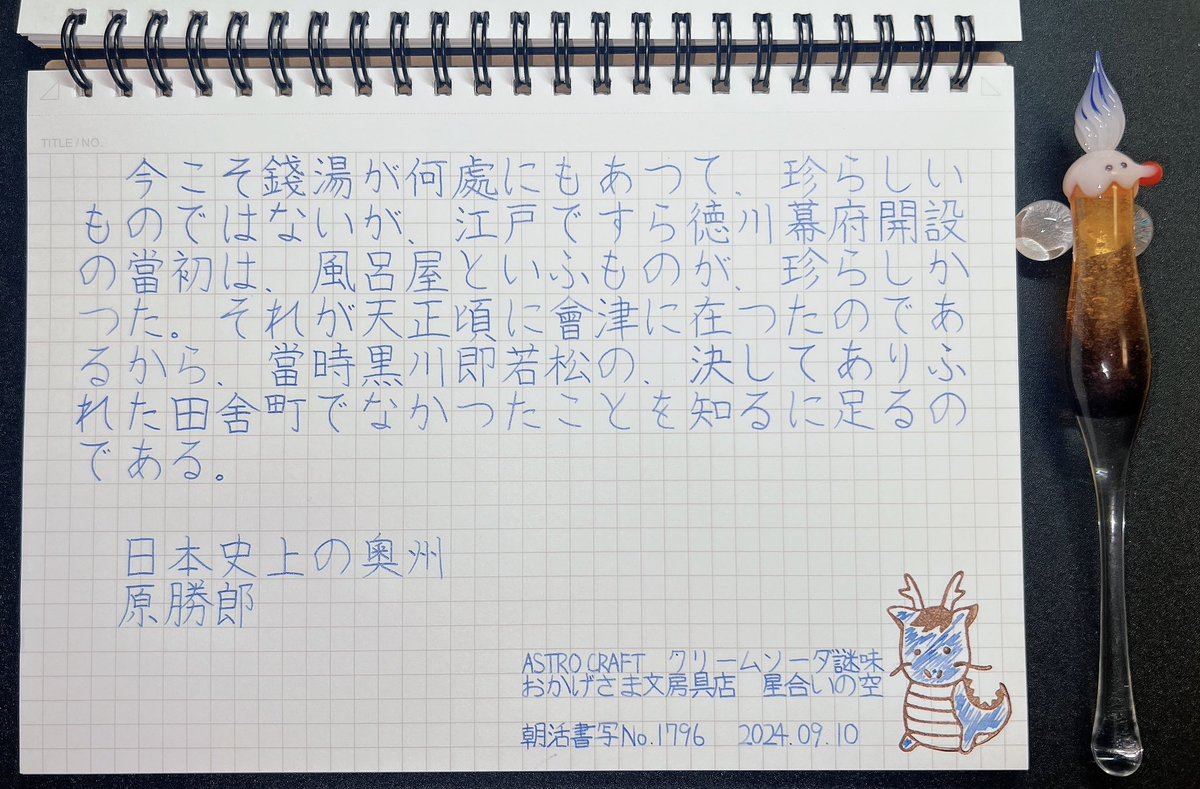 TITLE / NO.
今こそ錢湯が何處にもあつて、珍らしい
ものではないが、江戸ですら徳川幕府開設
の當初は、風呂屋といふものが、珍らしか
つた。それが天正頃に會津に在つたのであ
るから、當時黒川即若松の、決してありふ
れた田舎町でなかつたことを知るに足るの
である。
日本史上の奥州
原勝郎
ASTRO CRAFT クリームソーダ謎味
おかげさま文房具店 星合いの空
朝活書写No.1796 2024.09.10